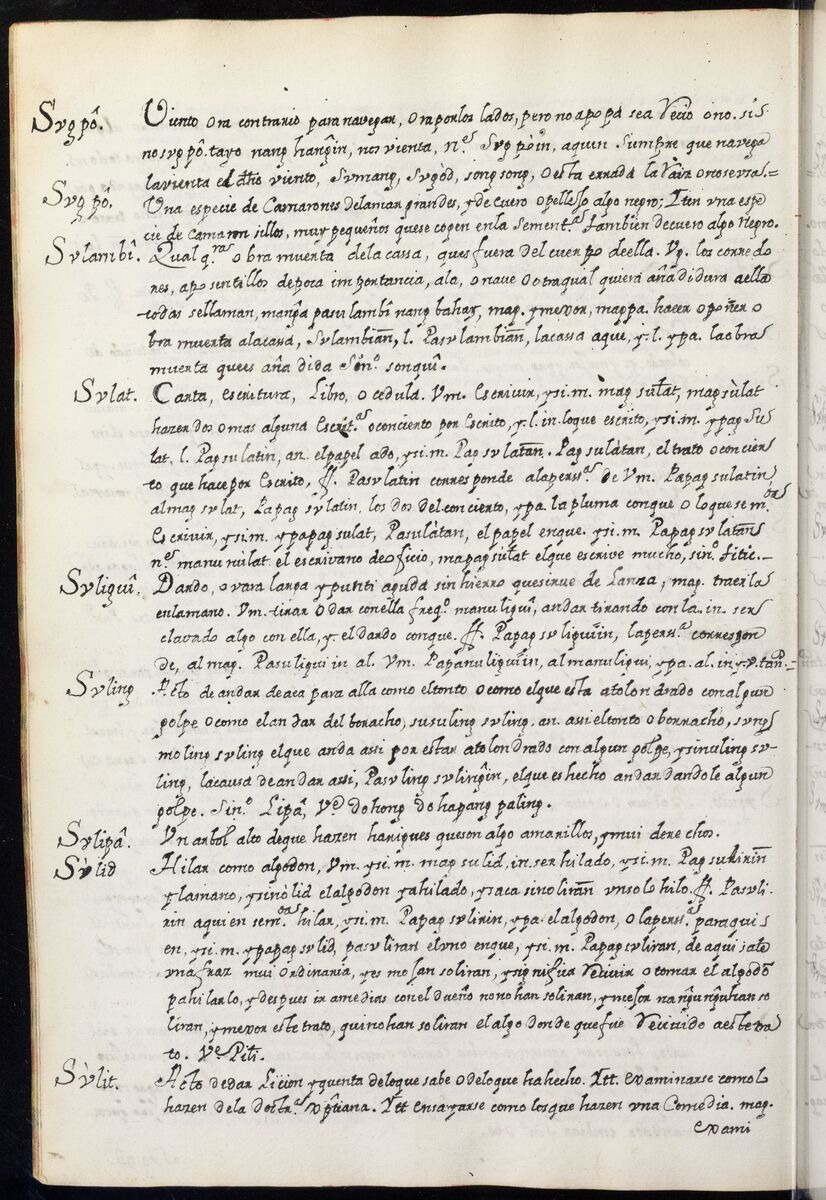 Sugpô. Viento ora contrario para navegar, ora por los lados, pero no a popa sea Recio o no. sis
no sugpô. tayo nang hangîn, nos vienta, n.ᵉˢ Sugpôin, aquien siempre que navega
la vienta el dho viento, Sumang, Sugòd, songsong, o esta errada la Raiz o no se usa.=
Sugpô. Una especie de Camarones de la mar grandes, y de cuero o pellejo algo negro; Iten una espe
cie de camaronsillos, muy pequeños que se cogen en la Sement.ᵃˢ tambien de cuero algo negro.
Sulambî. Qual q.ʳᵃ obra muerta de la cassa, ques fuera del cuerpo de ella. Vg. los corredo
res, aposentillos de poca importancia, ala, o nave o otra qual quiera añadidura a ella
todas se llaman, manga pasulambî nang bahay, mag. y mejor, magpa. hacer o poner o
bra muerta a la cassa, Sulambian, l. Pasulambian, la cassa a que, y. l. ypa. la obra
muerta que es añadida Sin.º songiu.
Sulat. Carta, escritura, Libro, o cedula. Vm. Escrivir, y si. m. mag sulat, mag sùlat
hazer dos o mas alguna Escrit.ᵃ o conçierto por Escrito, y. l. in. lo que escrito, y si. m. ypag su
lat. l. Pag sulatin, an. el papel ado, y si. m. Pag sulatan. Pag sulàtan, el trato o concier
to que hace por Escrito, ff. Pasulatin corresponde a la pers.ᵃ de Vm. Papag sulatin
al mag sulat, Papag sulatin, los dos del concierto, ypa. la pluma con que o lo que se m.ᵒʳᵃ
Escrivir, y si. m. ypapag sulat, Pasulàtan, el papel en que. y si. m. Papag sulatan
n.ᵉˢ manunulat el escrivano de oficio, mapagsulat el que escrive mucho, sin.º titic.—
Suliguî. Dardo, o vara larga y puntiaguda sin hierro que sirve de Lanza, mag. traerla
en la mano. Vm. tirar o dar con ella freq.º manuliguî, andar tirando con la. in. ser
clavado algo con ella, y. el dardo con que. ff. Papag suliguiin, la pers.ᵃ correspon
de, al mag. Pasuliguiin al. Vm. Papanuliguiin, al manuligui, ypa. al. in. y. v. tan.=
Suling Acto de andar de aca para alla como el tonto o como el que esta atolondrado con algun
golpe o como el andar del boracho, susuling suling. an. assi el tonto o borracho, sung
moling suling el que anda assi por estar atolondrado con algun golpe, y sinuling su-
ling, la causa de andar assi, Pasuling sulingin, el que es hecho andar dandole algun
golpe. Sin.º Lipâ, V.ᵉ dohong dohapang paling.
Sulipâ. Un arbol alto de que hazen hariques que son algo amarillos, y mui derechos.
Sùlid Hilar como algodon, Vm. y si. m. mag sulid, in. ser hilado, y si. m. Pag sulirin
y la mano, y sinòlid el algodon ya hilado, y saca sinoliran un solo hilo. ff. Pasuli-
rin a quien se m.ᵒʳᵃ hilar, y si. m. Papag sulirin, ypa. el algodon, o la pers.ᵃ para qui
en, y si. m. ypapag sulid, pasuliran el uno en que, y si. m. Papag suliran, de aqui sale
una fraz mui ordinaria, y es mohan soliran, y significa Recivir o tomar el algodõ
pa hilarlo, y despues ir a medias con el dueño nonohan soliran, y mejor nangunguhan so
liran, y mejor este trato, quinohan soliran el algodon de que fue Recivido a este tra
to. V.ᵉ Pili.
Sùlit. Acto de dar Licion y quenta de lo que sabe o de lo que ha hecho. Ytt. examinarse como lo
hazen de la Doctr.ᵃ Xptiana. Ytt ensayarse como los que hazen una Comedia. mag.
exami